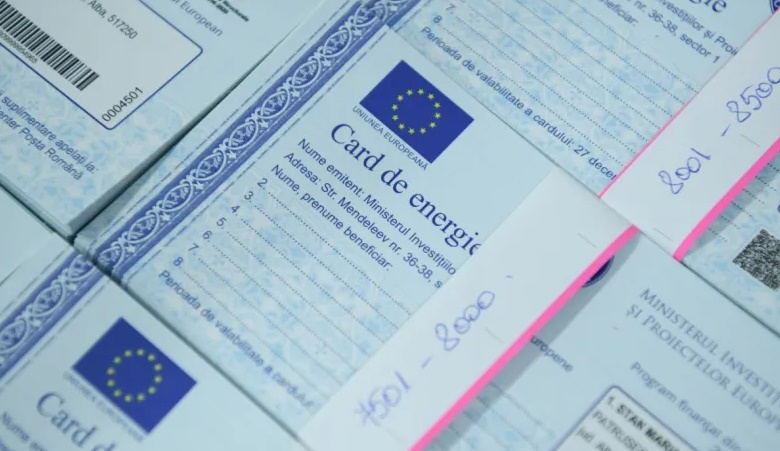 Alba, 517250
European
0004501
suplimentare apelați la:
Poșta Română
UNIUNEA EUROPEANĂ
Card de energie
Nume emitent: Ministerul Investițiilor
Adresa: Str. Mendeleev nr. 36-38, s
Nume, prenume beneficiar:
2.
3.
4.
5.
6.
7.
8.
Perioada de valabilitate a cardului
7501 - 8000
7.
8.
Investițiilor și Proi
nr. 36-38, sector 1
beneficiar:
Perioada de valabilitate a cardului: 27 decem
8001 - 8500
UNIUNEA EUROPEANĂ
Card d
Nume emitent
europene
MINISTERUL INVESTIȚ
ȘI PROIECTELOR EUROP
Program finanțat din
1. STAN MARI